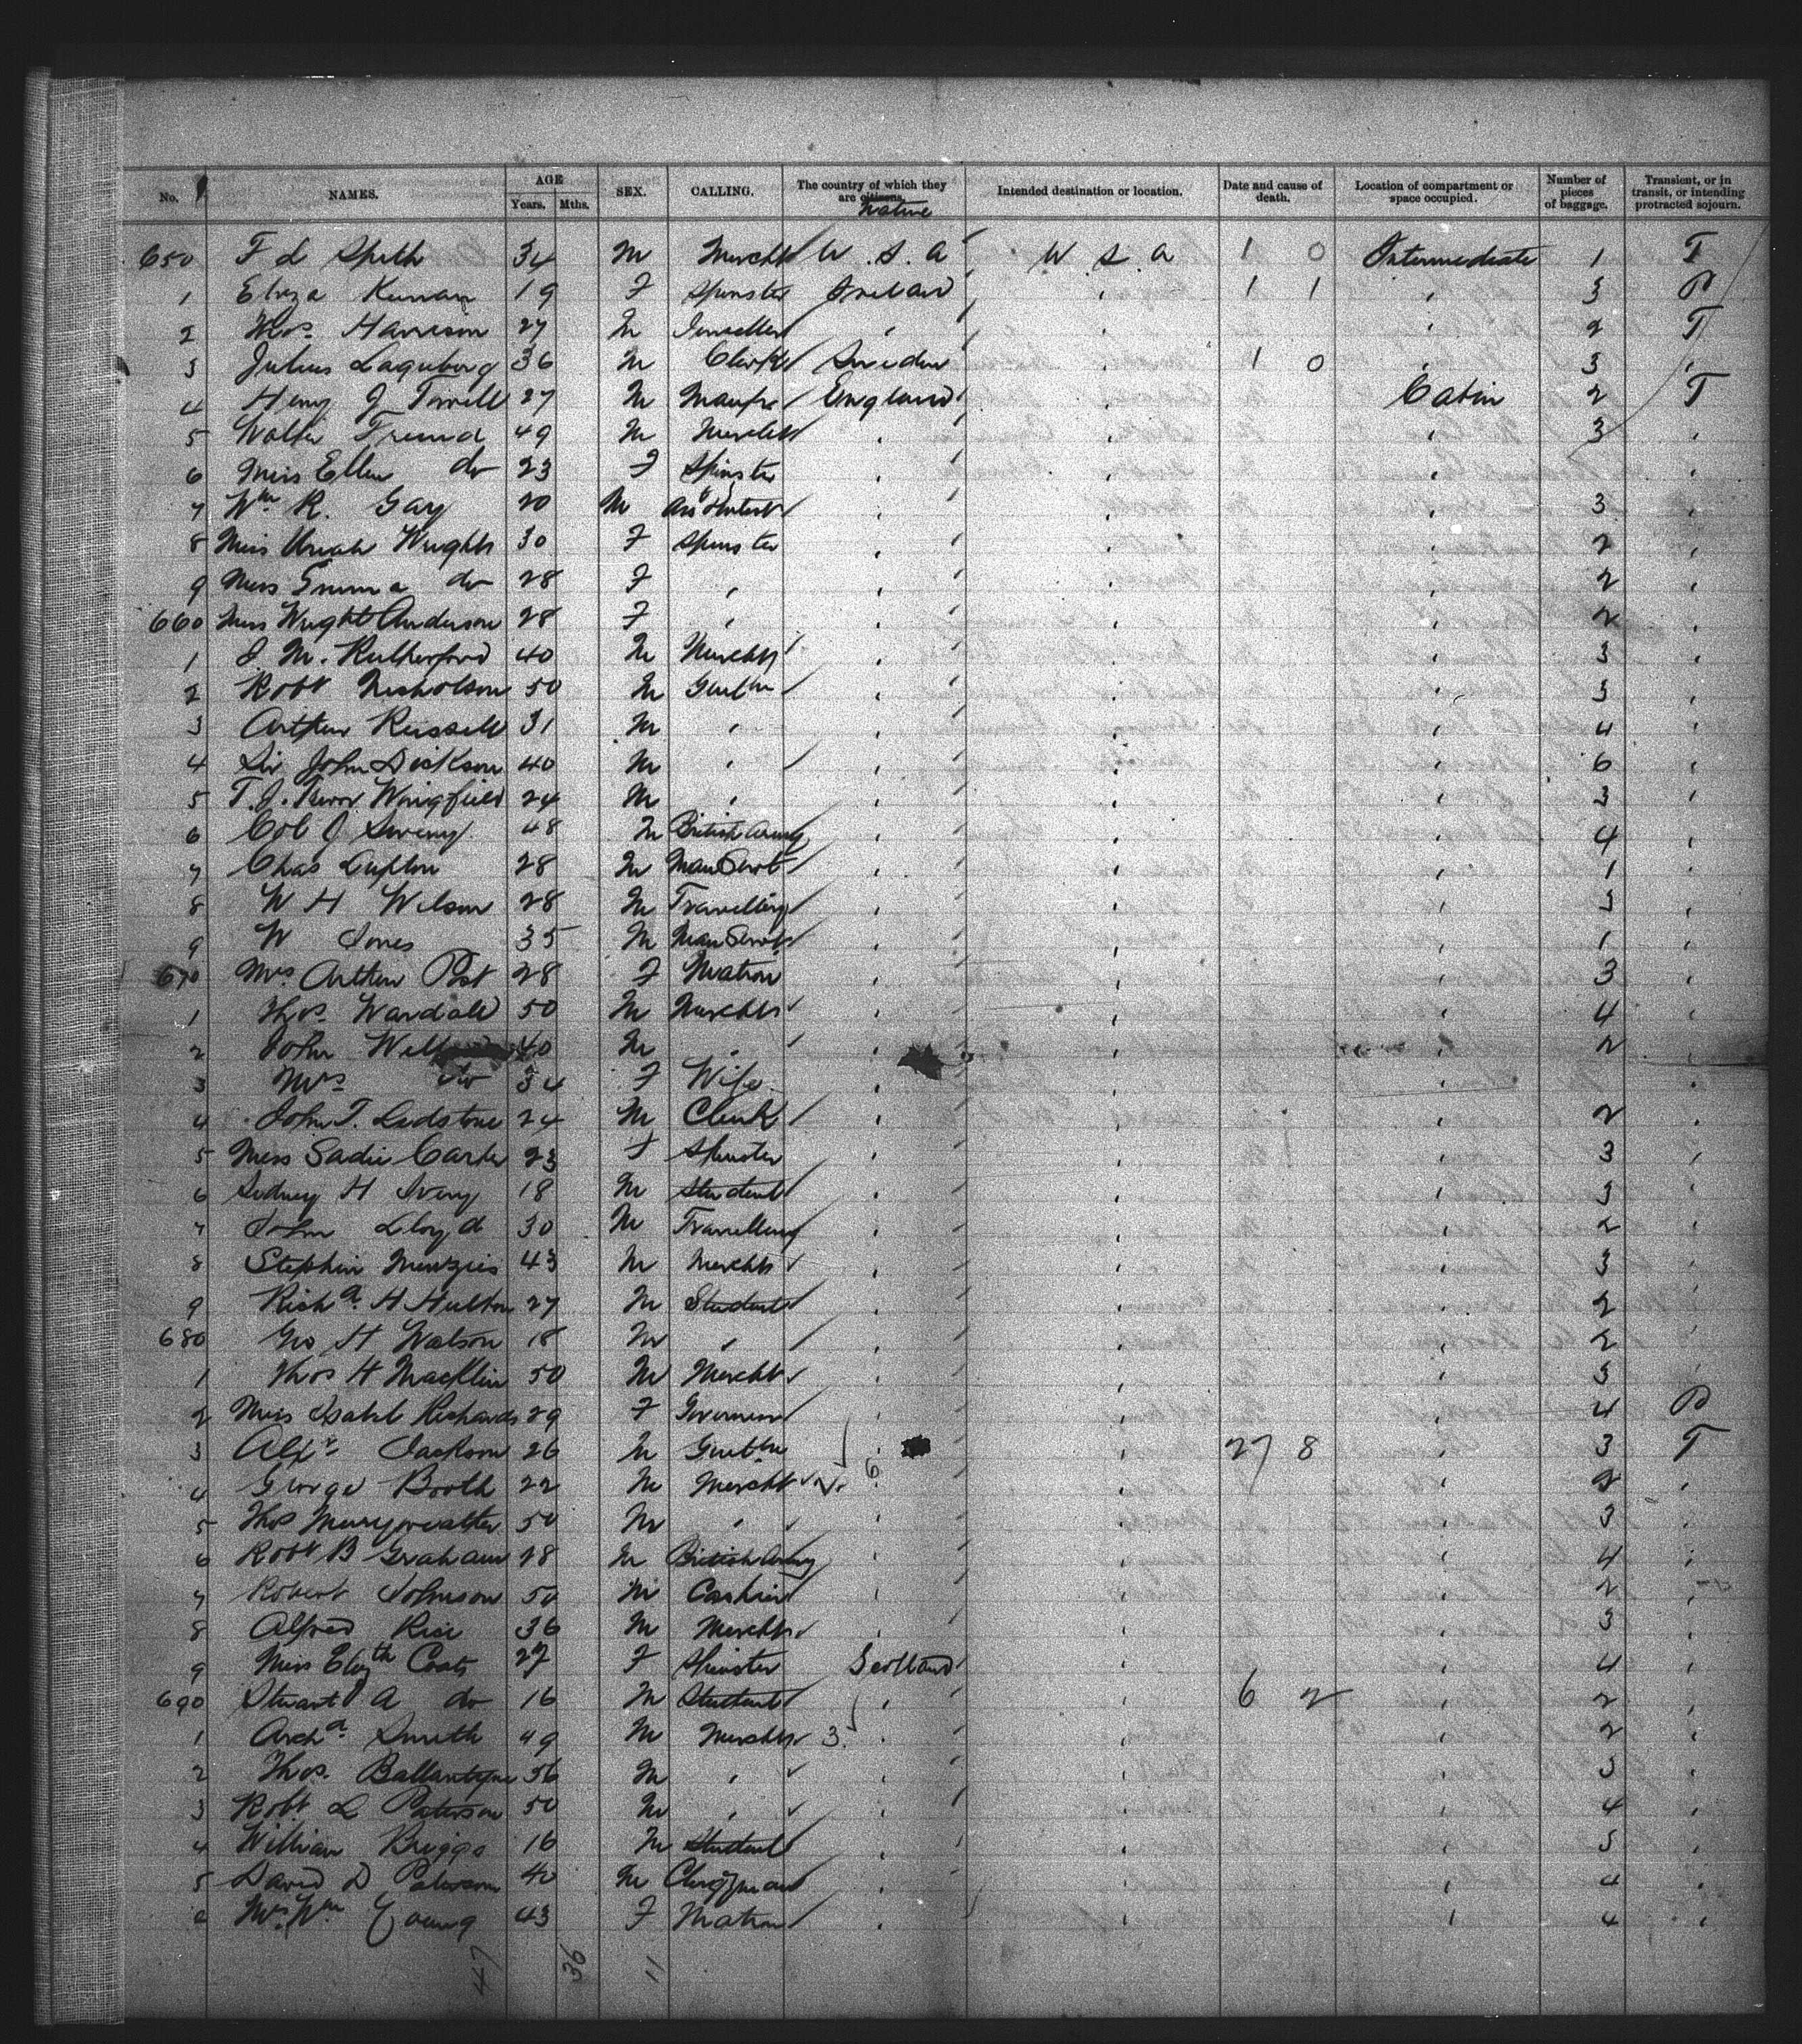 No. NAMES. AGE Years. Mths. SEX. CALLING. The country of which they are citizens. Native Intended destination or location. Date and cause of death. Location of compartment or space occupied. Number of pieces of baggage. Transient, or in transit, or intending protracted sojourn.
650 F d Speth 34 M Mercht U.S.A U S A 1 0 Intermediate 1 T
1 Eliza Kernan 19 F Spinster Ireland 1 1 3 P
2 Thos. Harrison 27 M Jeweller 2 T
3 Julius 36 M Clerk Sweden 1 0 3
4 Henry J 27 M Manfr England Cabin 2 T
5 Walter Friend 49 M Mercht 3
6 Miss Ellen do 23 F Spinster
7 Wm R. Gay 20 M 3
8 Miss Wright 30 F Spinster 2
9 Miss Emma do 28 F 2
660 Miss Wright Anderson 28 F 2
1 J. M. Rutherford 40 M Mercht 3
2 Robt Nicholson 50 M Gentlm 3
3 Arthur Russell 31 M 4
4 Sir John Dickson 40 M 6
5 T.J. Wingfield 24 M 3
6 Col J Sweny 48 M British Army 4
7 Chas Lupton 28 M Man Servt 1
8 W H Wilson 28 M Travelling 3
9 W Jones 35 M Man Servt 1
670 Mrs Arthur Post 28 F Matron 3
1 Thos. Wardale 50 M Mercht 4
2 John 40 M 2
3 Mrs do 34 F Wife
4 John T. Ladstone 24 M Clerk 2
5 Miss Sadie Carter 23 F Spinster 3
6 Sydney H Ivery 18 M Student 3
7 John Lloyd 30 M Travelling 2
8 Stephen Menzies 43 M Mercht 3
9 Richd H Hulton 27 M Student 2
680 Geo H Watson 18 M 2
1 Thos H Macklin 50 M Mercht 3
2 Miss Isabel Richards 29 F Governess 4 P
3 Alexr Jackson 26 M Gentlm 27 8 3 T
4 George Booth 22 M Mercht 2
5 Thos Merryweather 50 M 3
6 Robt B Graham 28 M British Army 4
7 Robert Johnson 50 M Cashier 2
8 Alfred Rice 36 M Mercht 3
9 Miss Elizth Coats 27 F Spinster Scotland 4
690 Stewart A do 16 M Student 6 2 2
1 Archd Smith 49 M Mercht 3 2
2 Thos. Ballantyne 56 M 3
3 Robt L Paterson 50 M 4
4 William Briggs 16 M Student 5
5 David D Paterson 40 M Clergyman 4
6 Mrs Wm Young 43 F Matron 4
47 36 11